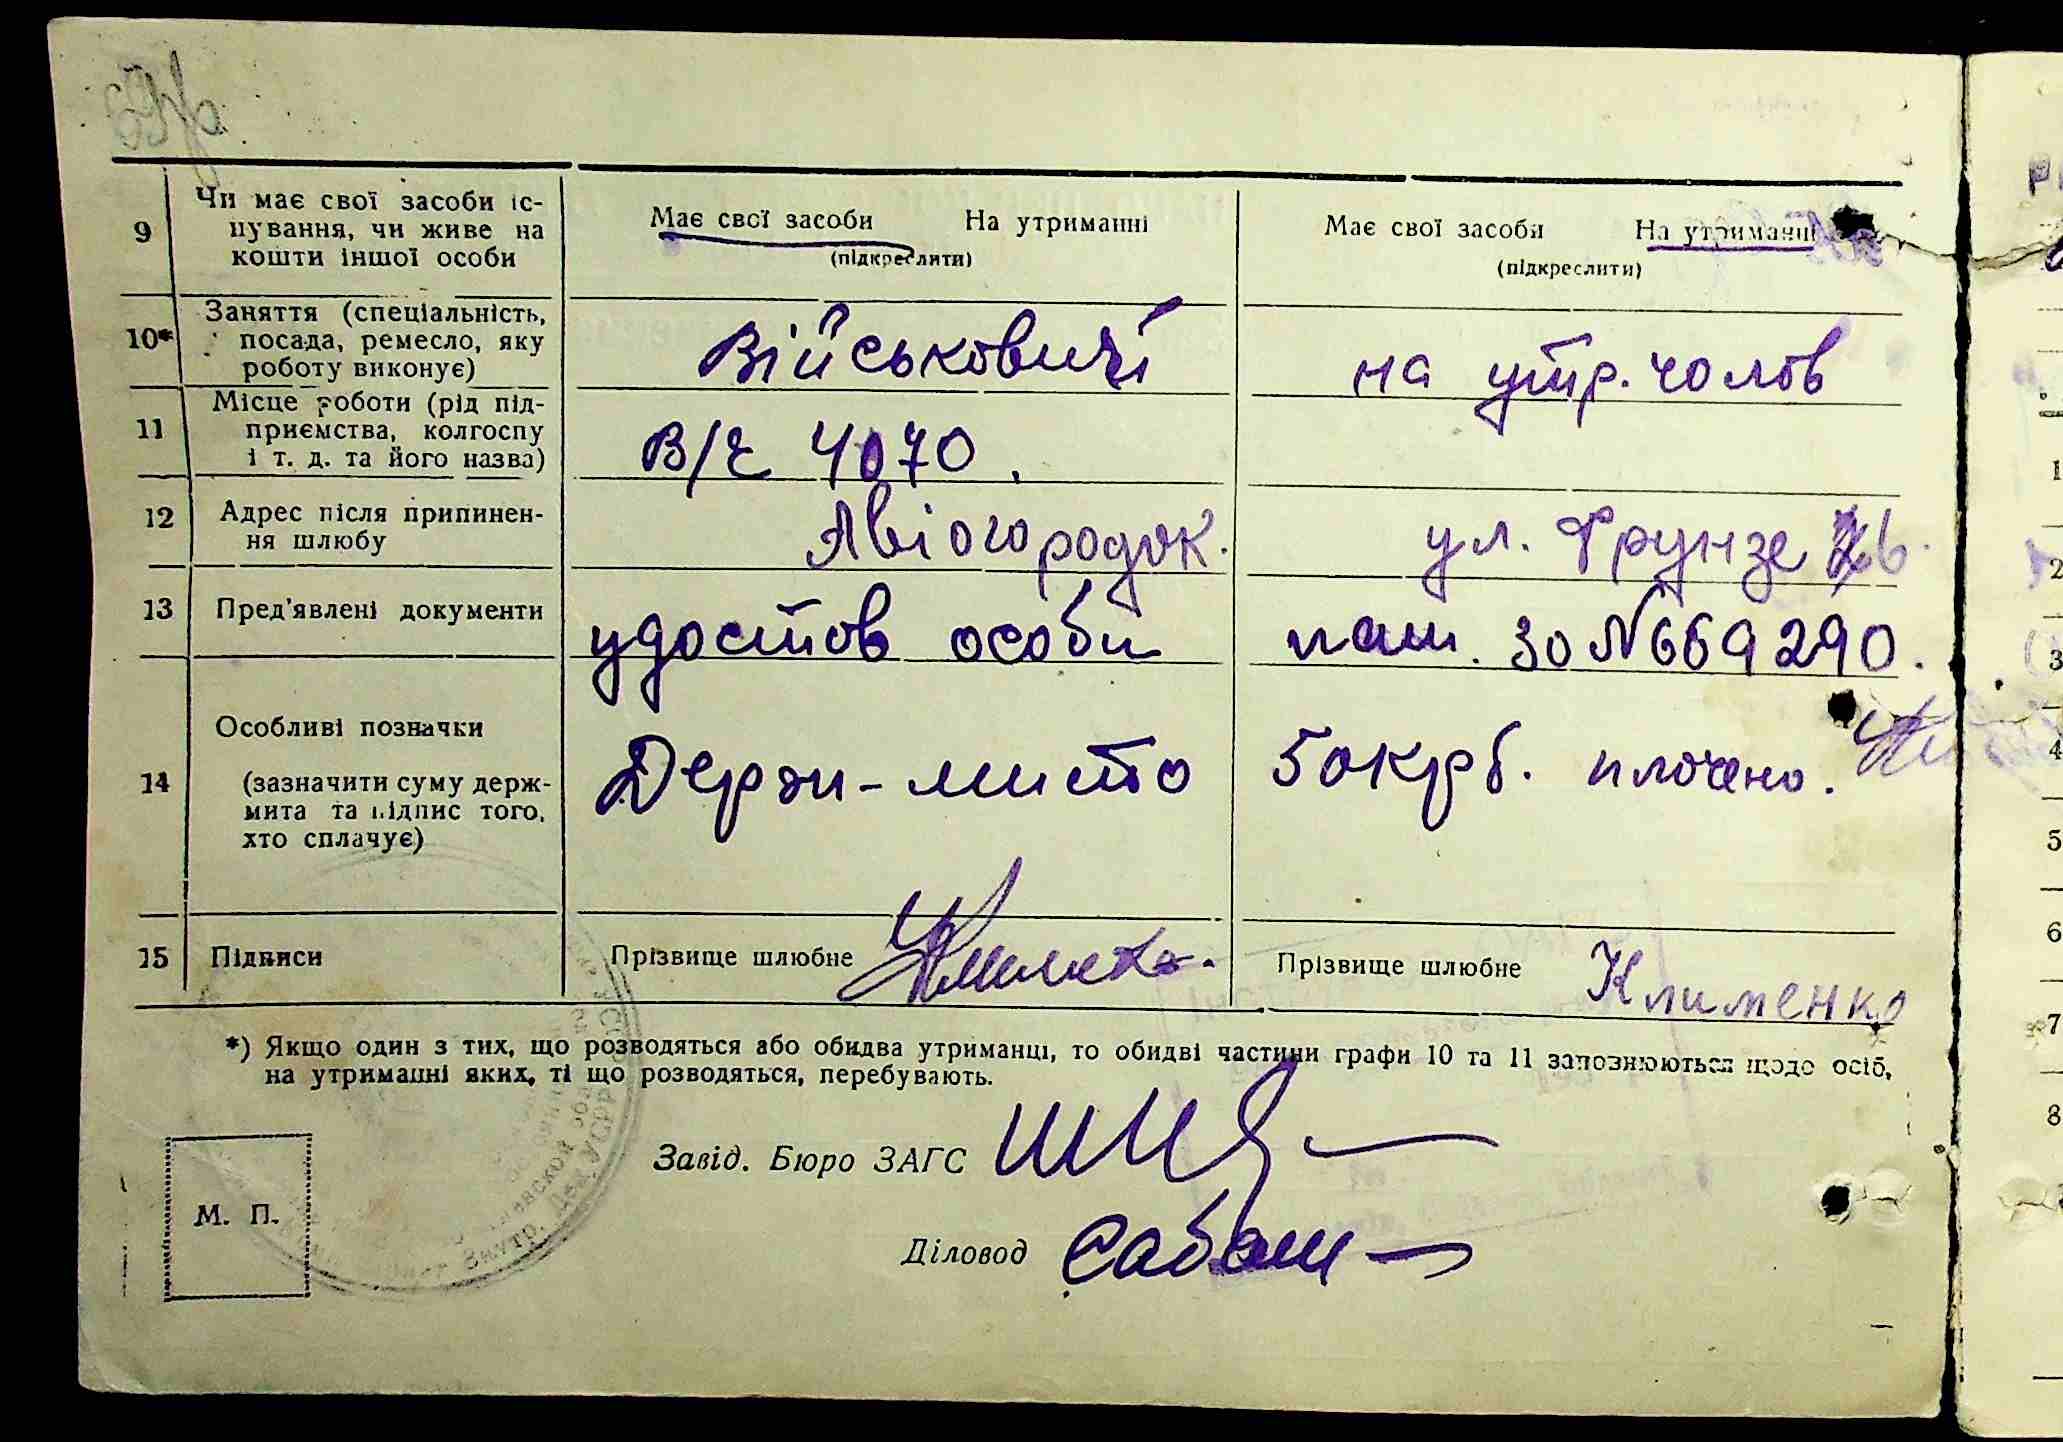 9
Чи має свої засоби іс-
нування, чи живе на
кошти іншої особи
Має свої засоби На утриманні
(підкреслити)
Має свої засоби На утриманні
(підкреслити)
10*
Заняття (спеціальність,
посада, ремесло, яку
роботу виконує)
Військовий
на утр. чолов
11
Місце роботи (рід під-
приємства, колгоспу
і т. д. та його назва)
В/ч 4070.
12
Адрес після припинен-
ня шлюбу
Авіогородок.
ул. Фрунзе
13
Пред'явлені документи
удостов особи
паш. ЗО № 669290.
14
Особливі позначки
(зазначити суму держ-
мита та підпис того,
хто сплачує)
Держ-мито 50 крб. плочено.
15
Підписи
Прізвище шлюбне
Прізвище шлюбне Клименко
*) Якщо один з тих, що розводяться або обидва утриманці, то обидві частини графи 10 та 11 заповнюються щодо осіб,
на утриманні яких, ті що розводяться, перебувають.
Завід. Бюро ЗАГС
М. П.
Діловод Сабаш
1
2
3
4
5
6
7
8